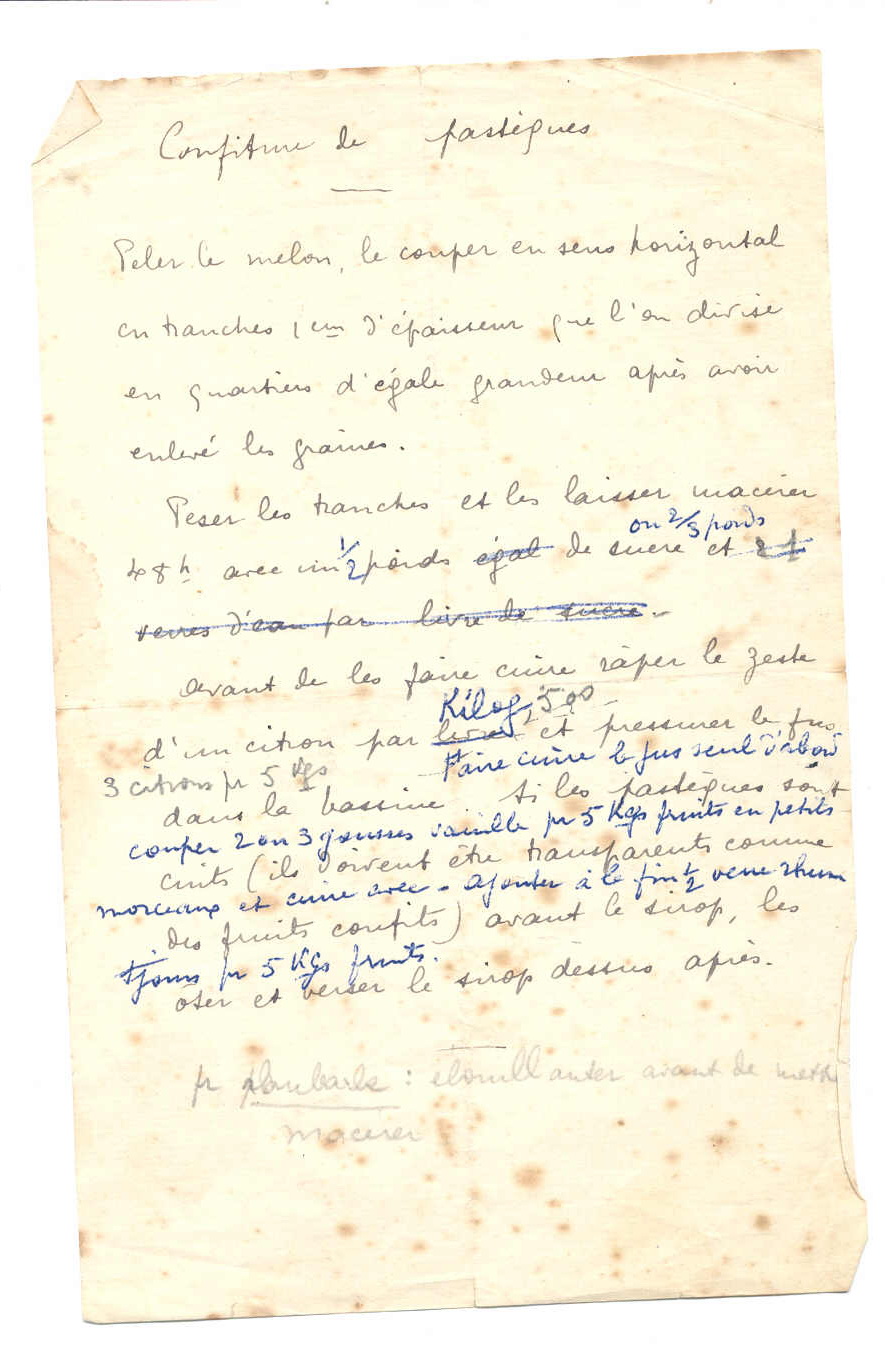 Confiture de pastègues
Peler le melon, le couper en sens horizontal
en tranches 1 cm d'épaisseur que l'on divise
en quartiers d'égale grandeur après avoir
enlevé les graines.
Peser les tranches et les laisser macérer
ou 2/3 poids
48h avec un 1/2 poids égal de sucre et
verres d'eau par livre de sucre.-
avant de les faire cuire râper le zeste
Kilog, 500
d'un citron par livre et pressurer le jus
3 citrons pr 5 Kgs Faire cuire le jus seul d'abord
dans la bassine. Si les pastègues sont
couper 2 ou 3 gousses vanille pr 5 Kgs fruits en petits
cuits (ils doivent être transparents comme
morceaux et cuire avec - ajouter à la fin 1/2 verre rhum
des fruits confits) avant le sirop, les
pr 5 Kgs fruits.
ôter et verser le sirop dessus après.
pr rhubarbe : ébouillanter avant de mettre
macérer